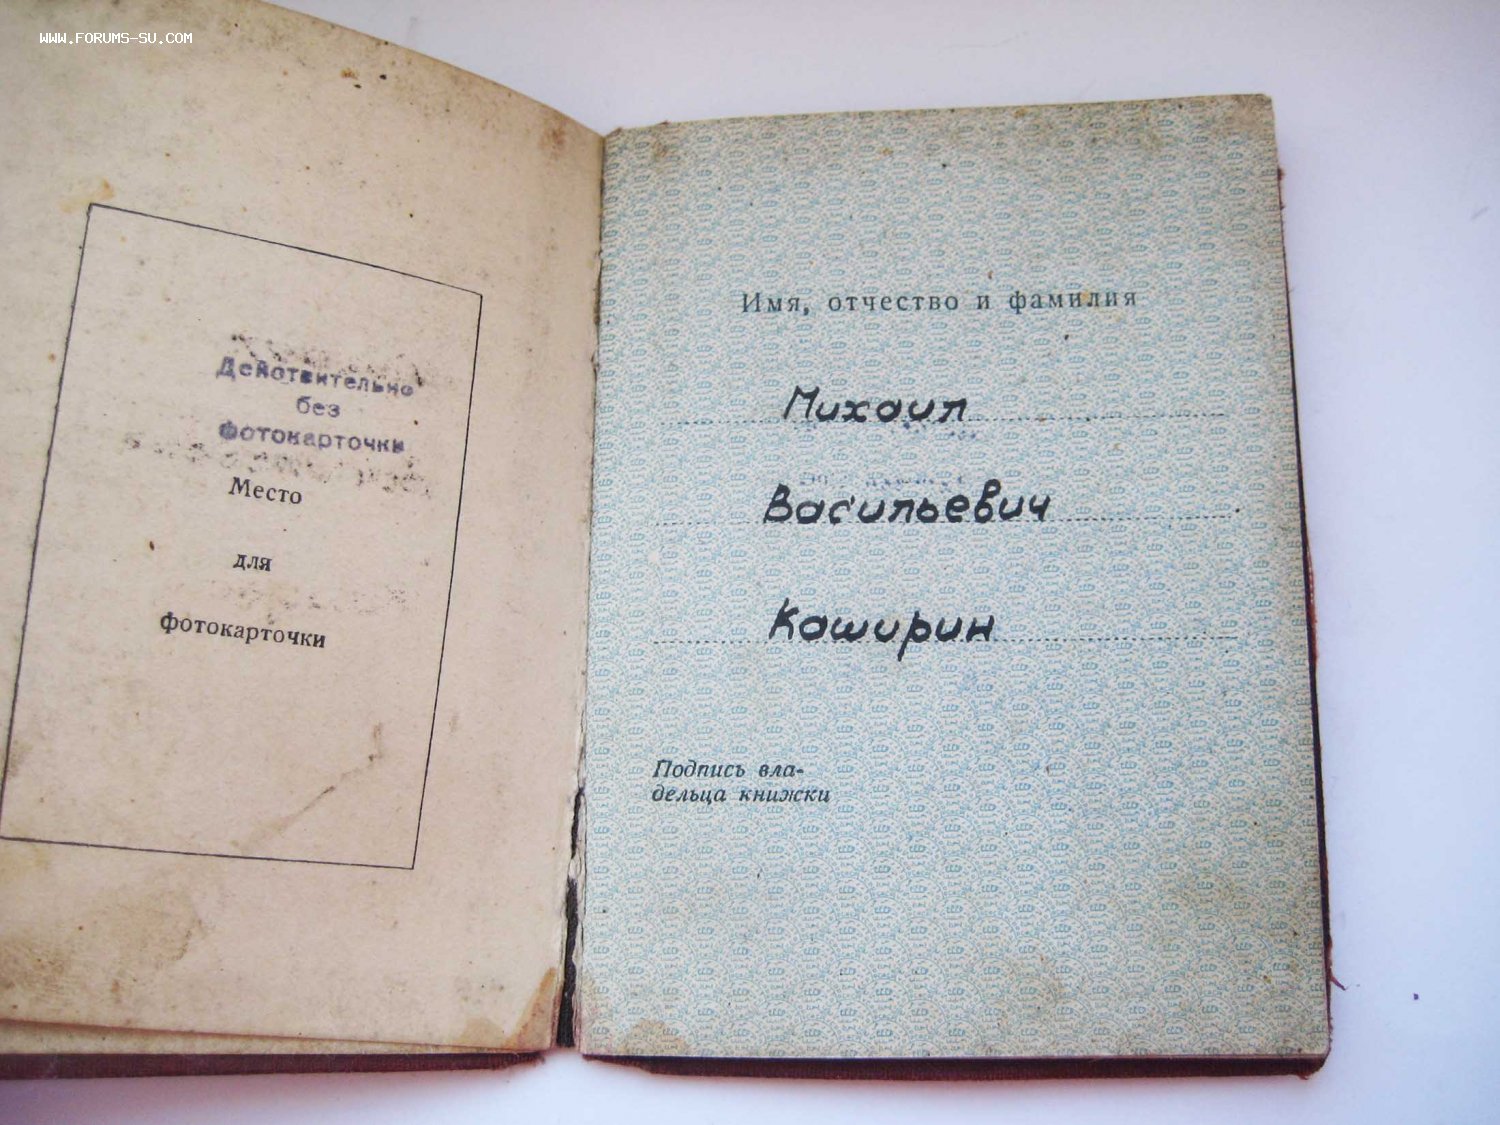 WWW.FORUMS-SU.COM
Действительно
без
фотокарточки
Место
для
фотокарточки
Имя, отчество и фамилия
Михаил
Васильевич
Каширин
Подпись вла-
дельца книжки